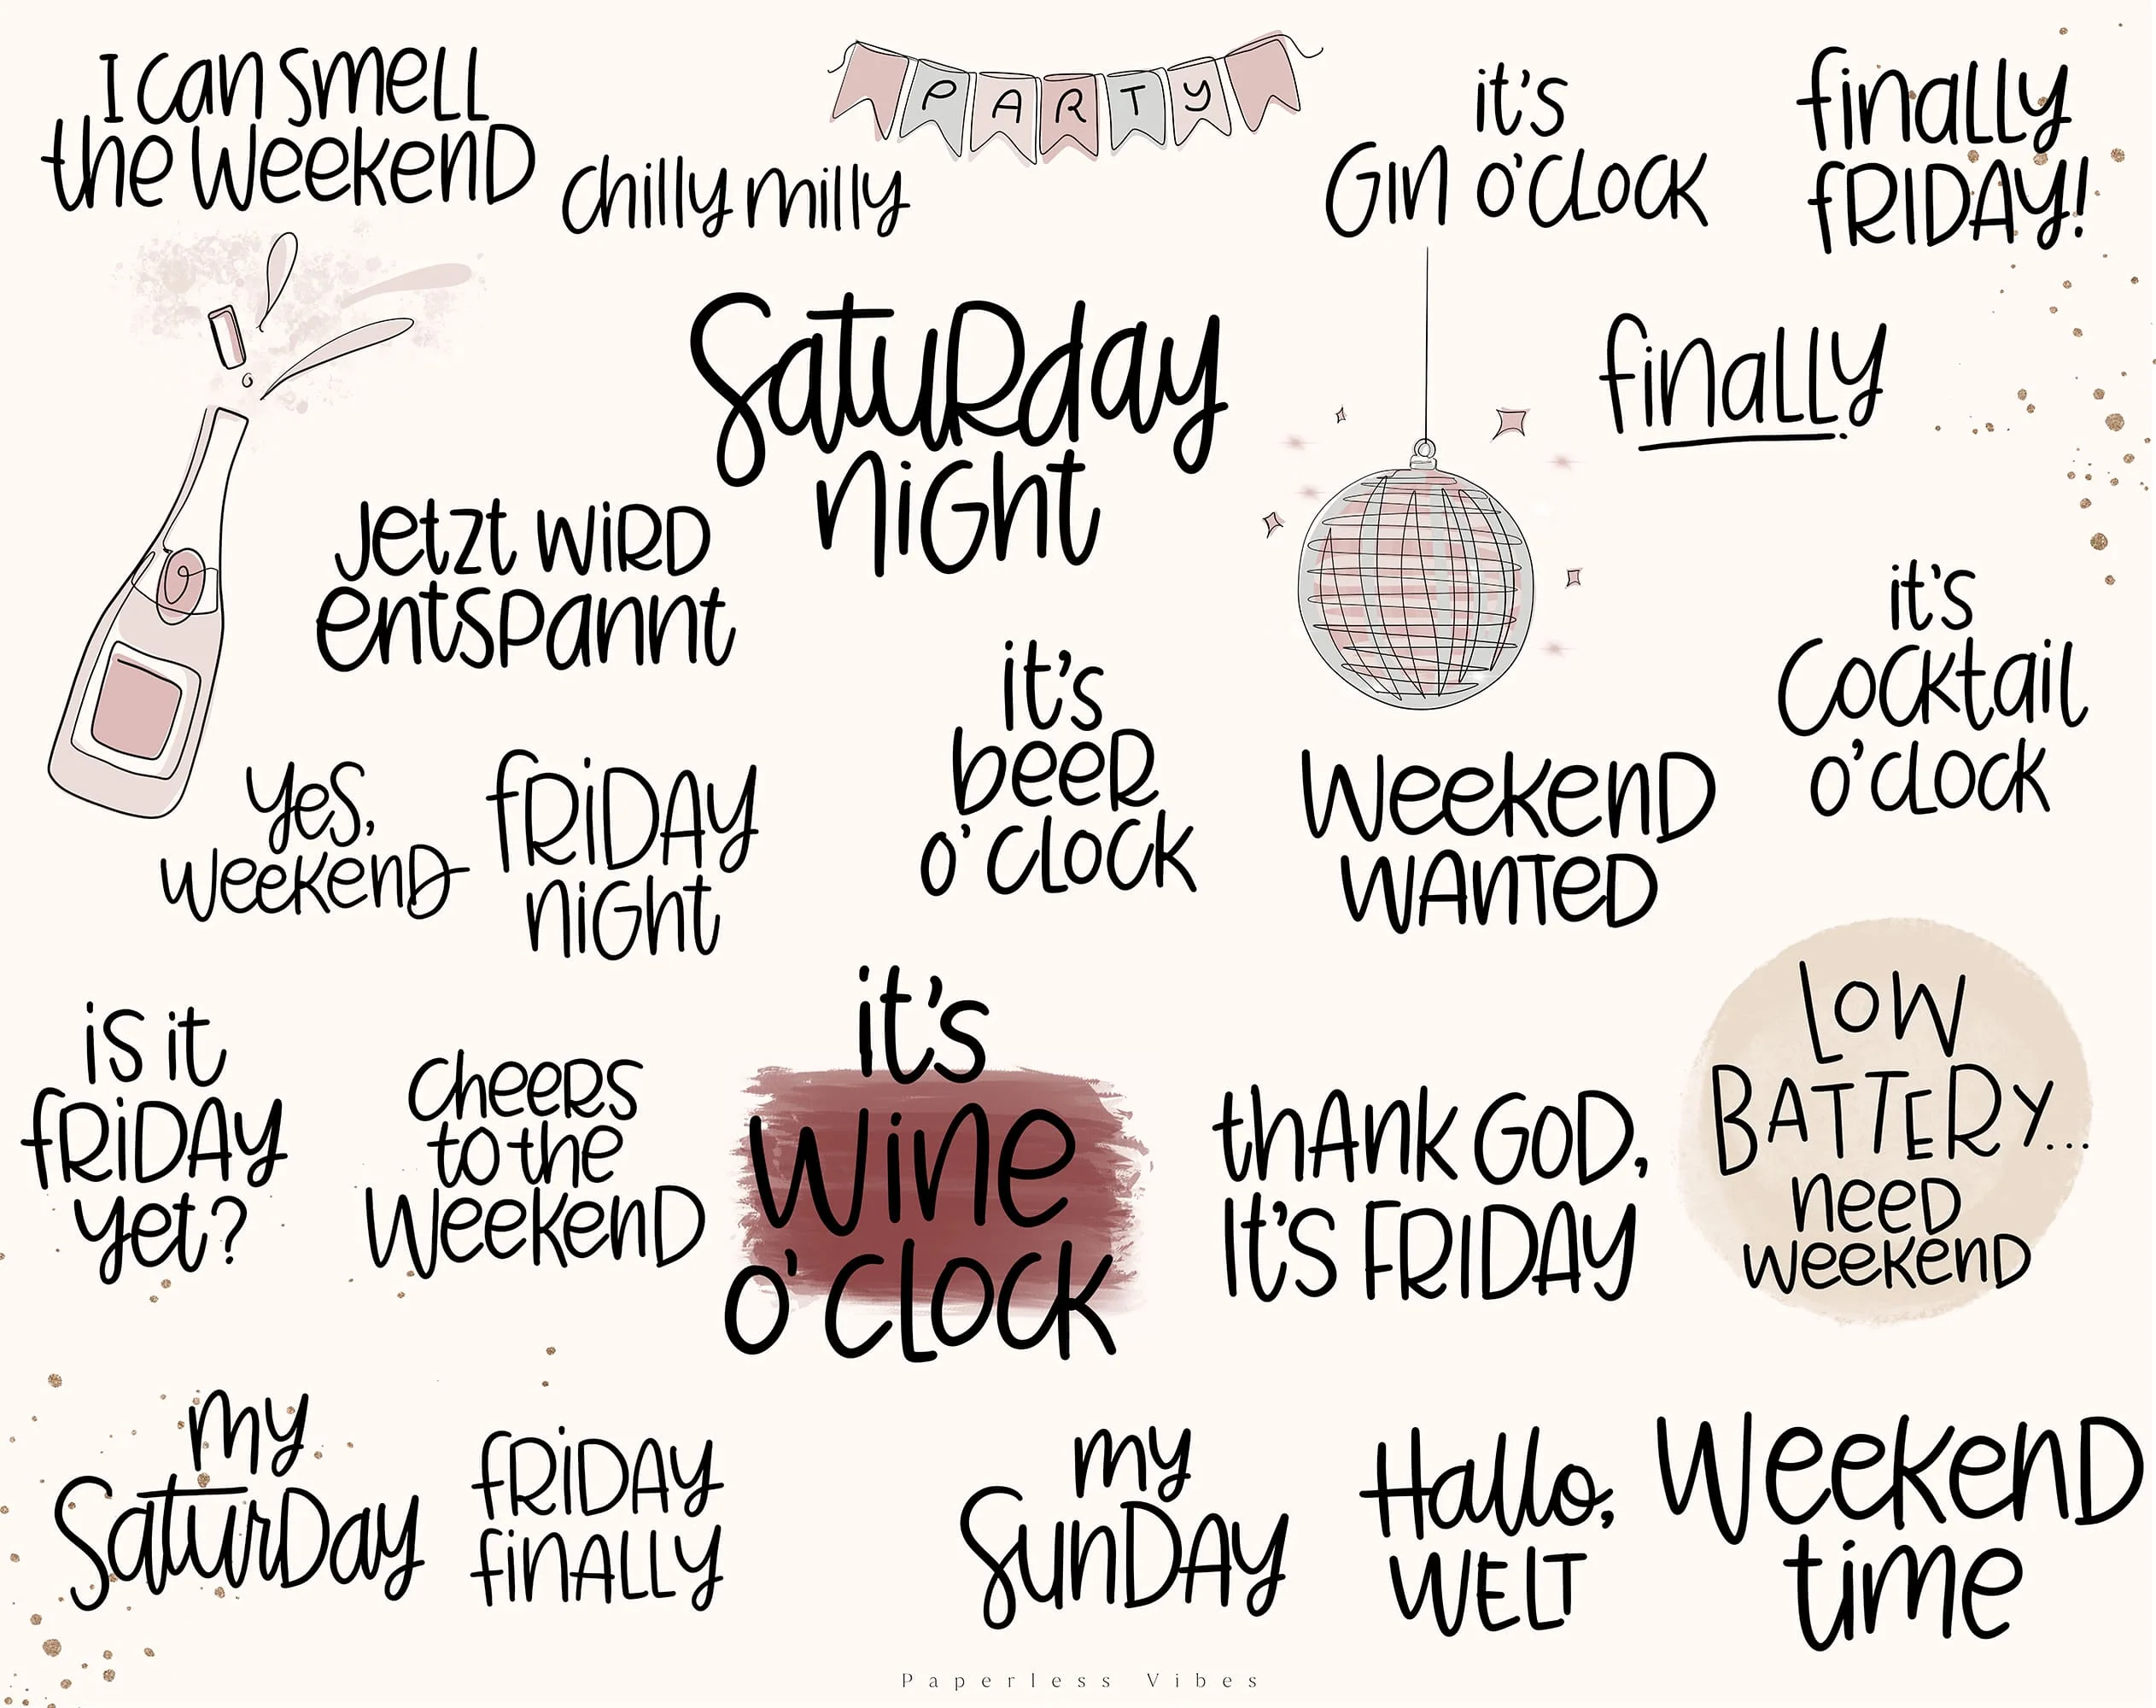 I can smell
the Weekend
chilly milly
PARTY
it's
Gin o'clock
finally
FRIDAY!
Saturday
night
finally
Jetzt wird
entspannt
it's
beer
o'clock
it's
Cocktail
o'clock
yes,
weekend
FRiDAY
night
Weekend
WANTED
is it
FRiDAY
yet?
cheers
to the
Weekend
it's
Wine
o'clock
thank GOD,
It's FRIDAY
LOW
BATTERY...
need
weekend
my
Saturday
FRiDAY
finally
my
SunDAY
Hallo,
WELT
Weekend
time
Paperless Vibes